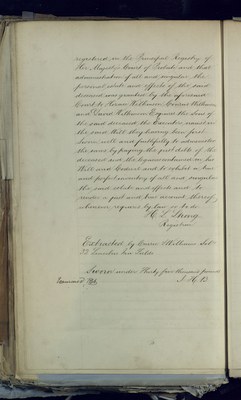 registered in the Principal Registry of
Her Majesty's Court of Probate and that
administration of all and singular the
personal estate and effects of the said
deceased was granted by the aforesaid
Court to
and Esquire the Sons of
the said deceased the Executors named in
the said Will they having been first
sworn well and faithfully to administer
the same by paying the just debts of the
deceased and the legacies contained in his
Will and Codicil and to exhibit a true
and perfect inventory of all and singular
the said estate and effects and to
render a just and true account thereof
whenever required by law so to do
H. L. Strong
Registrar
Extracted by Solr
Lincolns Inn Fields
Sworn under Thirty five thousand pounds
Examined J. H. B.